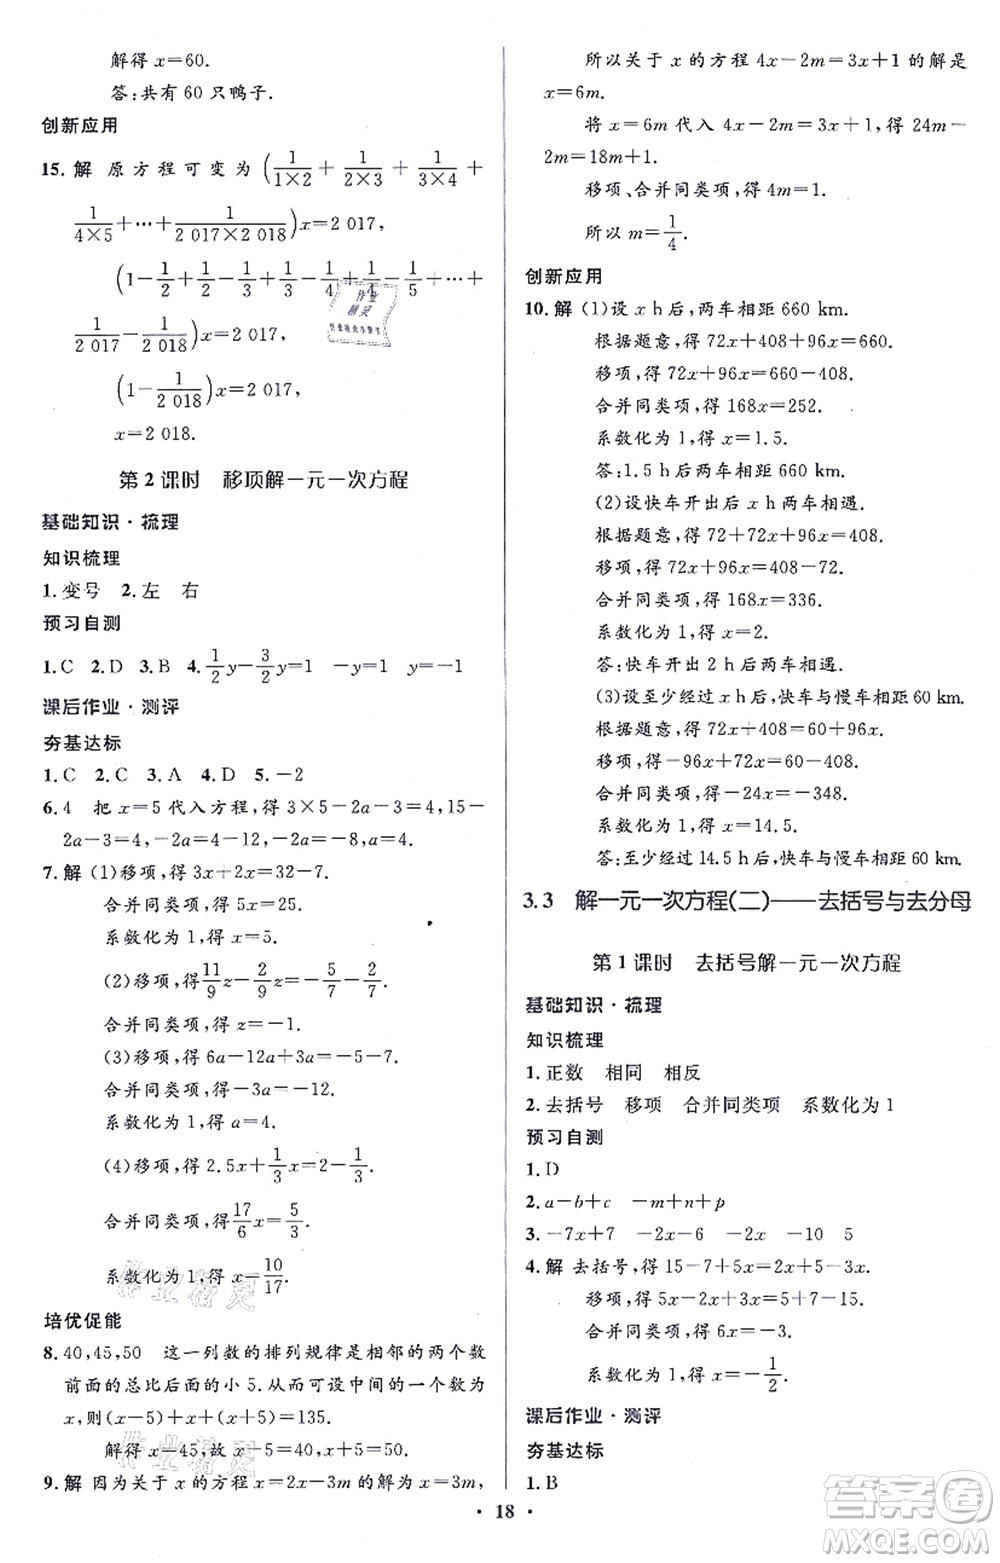 解得 x=60.
答:共有 60 只鸭子.
创新应用
15.解 原方程可变为(1/(1×2)+1/(2×3)+1/(3×4)+
1/(4×5)+…+1/(2 017×2 018))x=2 017,
(1-1/2+1/2-1/3+1/3-1/4+1/4-1/5+…+
1/2 017-1/2 018)x=2 017,
(1-1/2 018)x=2 017,
x=2 018.
第 2 课时 移项解一元一次方程
基础知识·梳理
知识梳理
1.变号 2.左 右
预习自测
1.C 2.D 3.B 4.1/2y-3/2y=1 -y=1 y=-1
课后作业·测评
夯基达标
1.C 2.C 3.A 4.D 5.-2
6.4 把 x=5 代入方程,得 3×5-2a-3=4,15-
2a-3=4,-2a=4-12,-2a=-8,a=4.
7.解 (1)移项,得 3x+2x=32-7.
合并同类项,得 5x=25.
系数化为 1,得 x=5.
(2)移项,得 11/9z-2/9z=2/7-9/7.
合并同类项,得 z=-1.
(3)移项,得 6a-12a+3a=-5-7.
合并同类项,得-3a=-12.
系数化为 1,得 a=4.
(4)移项,得 2.5x+1/3x=2-1/3.
合并同类项,得 17/6x=5/3.
系数化为 1,得 x=10/17.
培优促能
8.40,45,50 这一列数的排列规律是相邻的两个数
前面的总比后面的小 5.从而可设中间的一个数为
x,则(x-5)+x+(x+5)=135.
解得 x=45,故 x-5=40,x+5=50.
9.解 因为关于 x 的方程 x=2x-3m 的解为 x=3m,
所以关于 x 的方程 4x-2m=3x+1 的解是
x=6m.
将 x=6m 代入 4x-2m=3x+1,得 24m-
2m=18m+1.
移项、合并同类项,得 4m=1.
所以 m=1/4.
创新应用
10.解 (1)设 x h 后,两车相距 660 km.
根据题意,得 72x+408+96x=660.
移项,得 72x+96x=660-408.
合并同类项,得 168x=252.
系数化为 1,得 x=1.5.
答:1.5 h 后两车相距 660 km.
(2)设快车开出后 x h 两车相遇.
根据题意,得 72+72x+96x=408.
移项,得 72x+96x=408-72.
合并同类项,得 168x=336.
系数化为 1,得 x=2.
答:快车开出 2 h 后两车相遇.
(3)设至少经过 x h 后,快车与慢车相距 60 km.
根据题意,得 72x+408=60+96x.
移项,得-96x+72x=60-408.
合并同类项,得-24x=-348.
系数化为 1,得 x=14.5.
答:至少经过 14.5 h 后,快车与慢车相距 60 km.
3.3 解一元一次方程(二)——去括号与去分母
第 1 课时 去括号解一元一次方程
基础知识·梳理
知识梳理
1.正数 相同 相反
2.去括号 移项 合并同类项 系数化为 1
预习自测
1.D
2.a-b+c -m+n+p
3.-7x+7 -6x -2x -2x -10 5
4.解 去括号,得 15-7+5x=2x+5-3x.
移项,得 5x-2x+3x=5+7-15.
合并同类项,得 6x=-3.
系数化为 1,得 x=-1/2.
课后作业·测评
夯基达标
1.B
· 18 ·
作业
精灵
作业精灵
作业精灵
答案圈
MXQE.COM